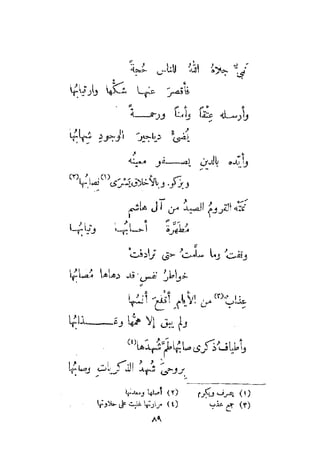 نبيٌّ جلاهُ اللهُ للناسِ حُجةً
فأقصرَ عنها شكُّها وارتيابُها
وأرسله عِتقًا وأمنًا ورحمـــةً
يُضيءُ دياجيرَ الوجودِ شِهابُها
وأيّده بالدين يصــفو معينُه
ويزكو، وبالأخلاق يَشرى (١) نِصابُها (٢)
نَمَتْه القرومُ الصِيدُ من آل هاشمٍ
مُطهَّرةً أحسابُها، وثيابُها
وقفتُ وما سلّمتُ حتى ترادفتْ
خواطرُ نفسٍ قد دهاها مُصابُها
عِذابٌ (٣) من الأيام أقفرَ أنسُها
ولم يبق إلا همُّها وعـــذابُها
وأطيافُ ذكرى صابُها شُهدَها (٤)
بروحيَ شُهدُ الذكريات وصابُها
(١) يشرف ويكرم (٢) أصلها ومعدنها
(٣) جمع عذب (٤) مرارتها غلبت على حلاوتها
٨٩